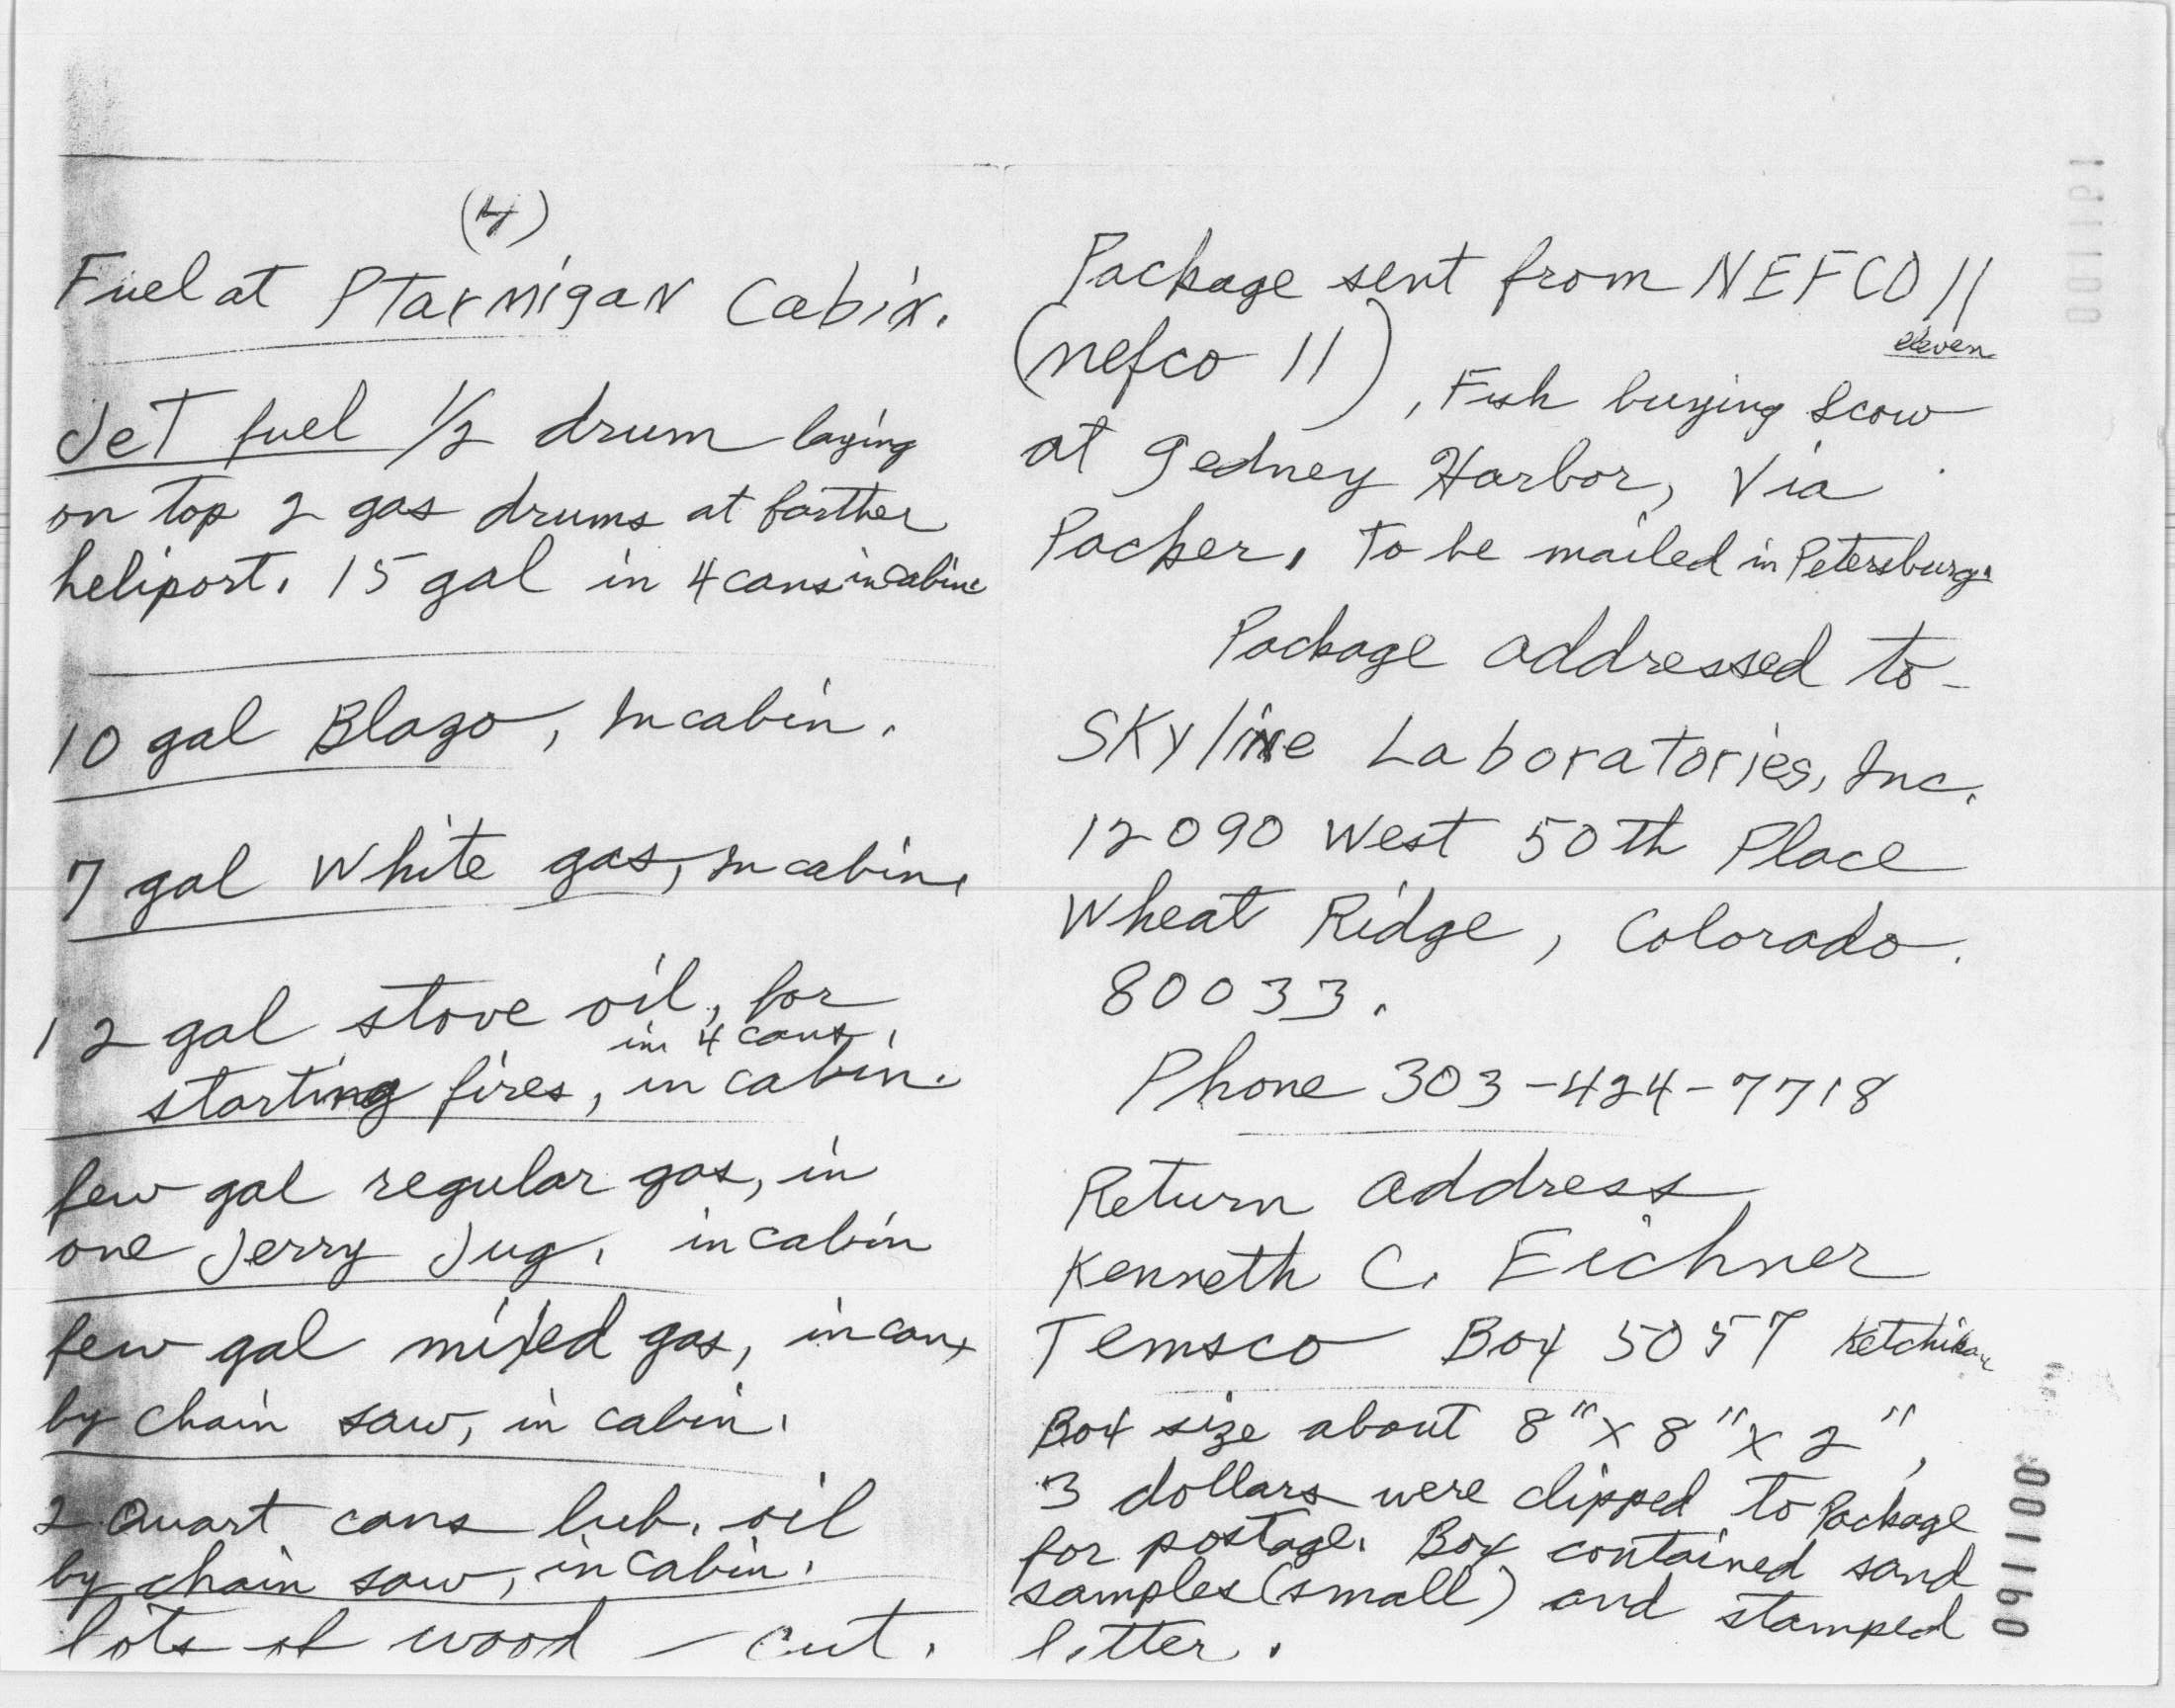 (4)
Fuel at Ptarmigan Cabin.
Jet fuel 1/2 drum laying
on top 2 gas drums at farther
heliport. 15 gal in 4 cans in cabin
10 gal Blazo, In cabin.
7 gal White gas, In cabin.
12 gal stove oil, for
in 4 cans,
starting fires, in cabin.
few gal regular gas, in
one Jerry Jug. in cabin
few gal mixed gas, in cans
by chain saw, in cabin.
2 Quart cans lub. oil
by chain saw, in cabin.
lots of wood - cut.
Package sent from NEFCO 11
eleven
(nefco 11), Fish buying scow
at Gedney Harbor, Via
Packer. To be mailed in Petersburg.
Package addressed to -
Skyline Laboratories, Inc.
12090 West 50th Place
Wheat Ridge, Colorado.
80033.
Phone 303-424-7718
Return address
Kenneth C. Eichner
Temsco Box 5057 Ketchikan
Box size about 8" x 8" x 2",
3 dollars were clipped to Package
for postage. Box contained sand
samples (small) and stamped
litter.
001160
001161